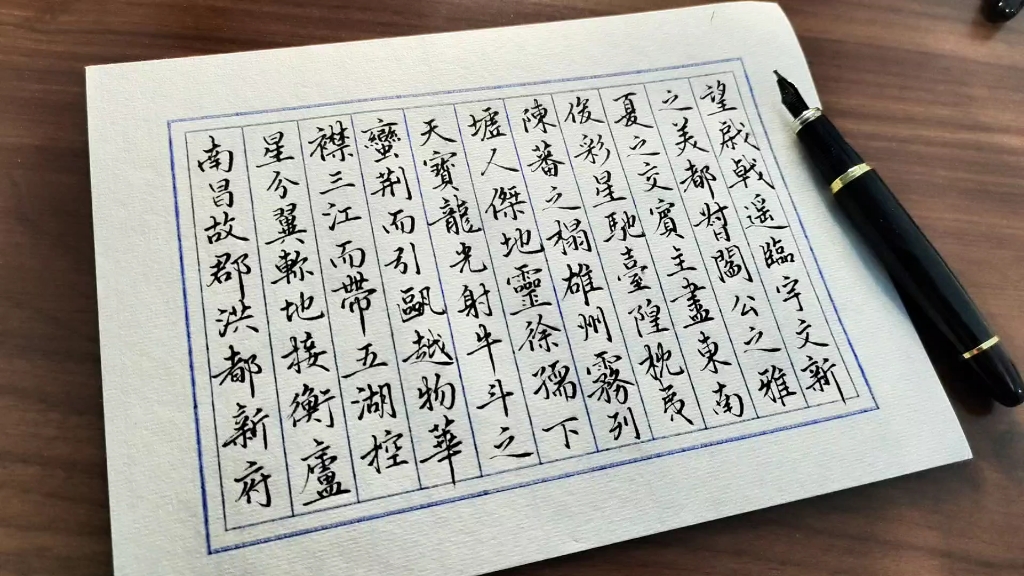 南昌故郡洪都新府
星分翼軫地接衡廬
襟三江而帶五湖控
蠻荊而引甌越物華
天寶龍光射牛斗之
墟人傑地靈徐孺下
陳蕃之榻雄州霧列
俊彩星馳臺隍枕夷
夏之交賓主盡東南
之美都督閻公之雅
望棨戟遥臨宇文新